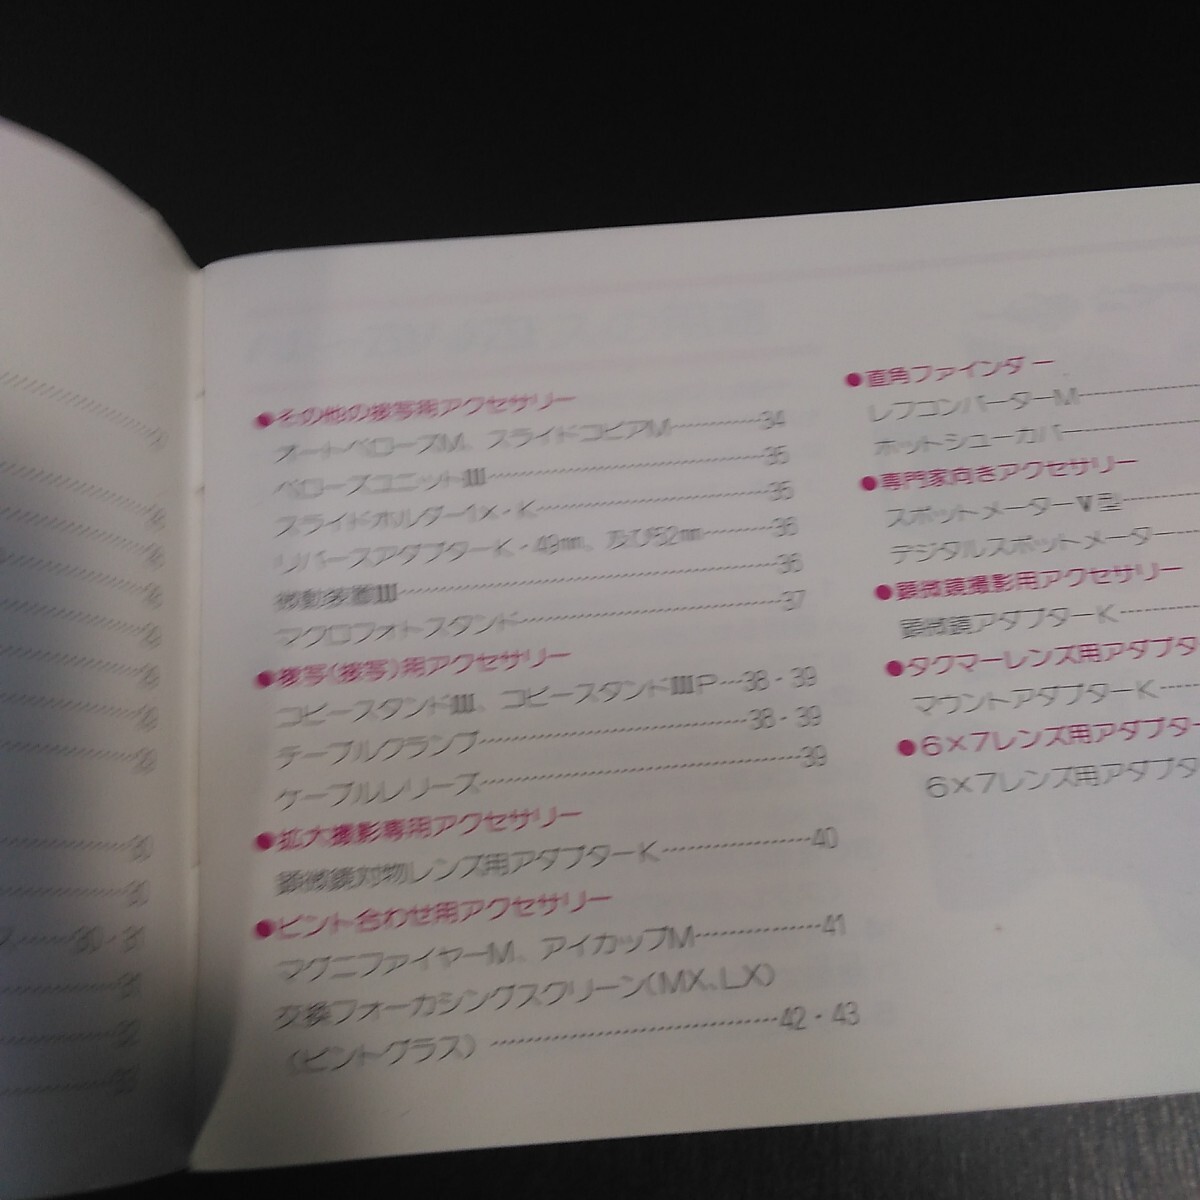 ●その他の接写用アクセサリー
オートベローズM、スライドコピアM…………34
ベローズユニットⅢ…………35
スライドホルダー1×・K…………35
リバースアダプターK・49㎜、及び52㎜…………36
微動装置Ⅲ…………36
マクロフォトスタンド…………37
●複写(接写)用アクセサリー
コピースタンドⅢ、コピースタンドⅢP…38・39
テーブルクランプ…………38・39
ケーブルレリーズ…………39
●拡大撮影専用アクセサリー
顕微鏡対物レンズ用アダプターK…………40
●ピント合わせ用アクセサリー
マグニファイヤーM、アイカップM…………41
交換フォーカシングスクリーン(MX、LX)
(ピントグラス)…………42・43
●直角ファインダー
レフコンバーターM…………
ホットシューカバー…………
●専門家向きアクセサリー
スポットメーターⅤ型…………
デジタルスポットメーター…………
●顕微鏡撮影用アクセサリー
顕微鏡アダプターK…………
●タクマーレンズ用アダプタ
マウントアダプターK…………
●6×7レンズ用アダプター
6×7レンズ用アダプタ